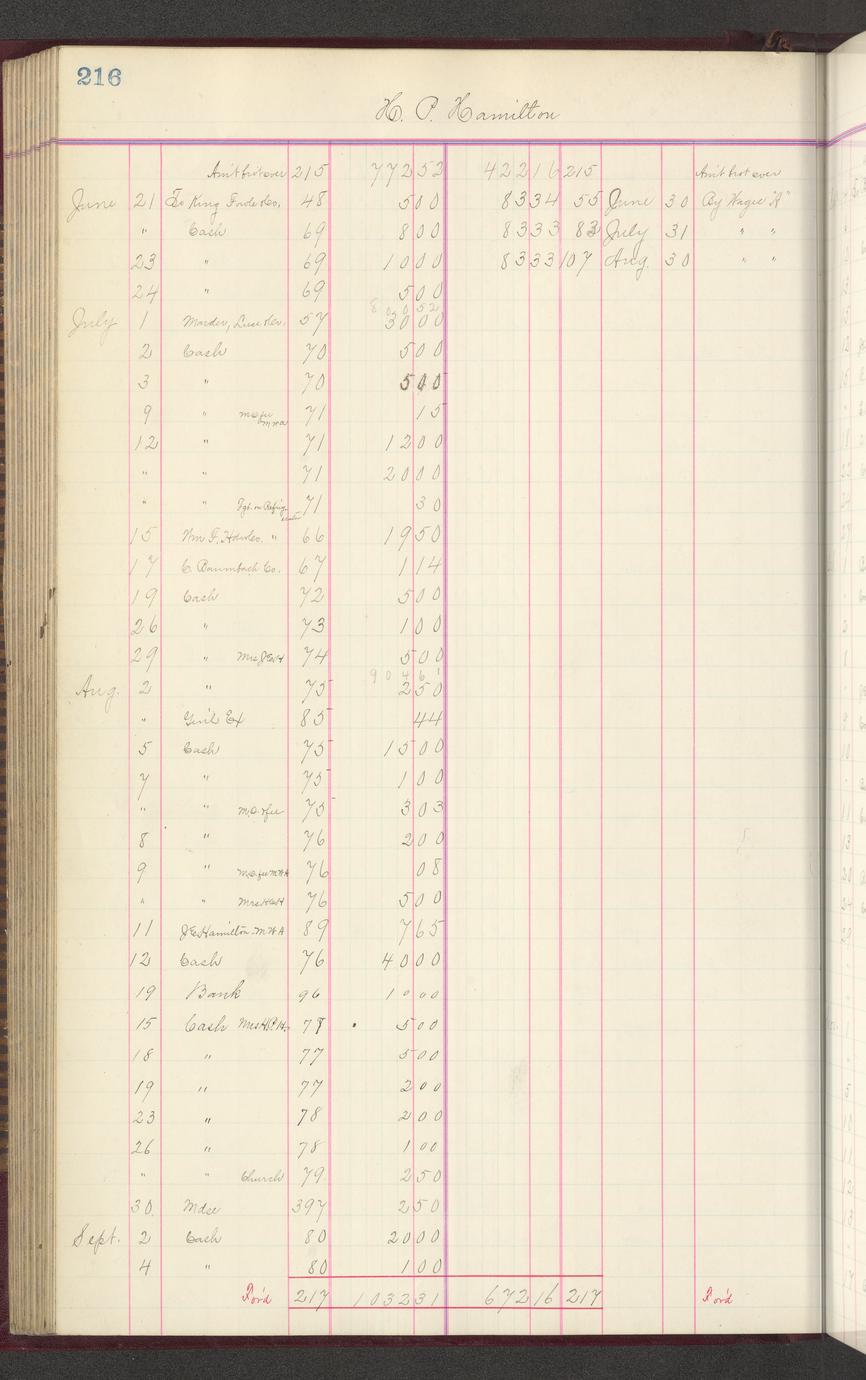 216
H. P. Hamilton
Am't bro't over 215 772 52 422 16 215 Am't bro't over
June 21 To King Fowle & Co. 48 5 00 83 34 55 June 30 By Wages "A"
" Cash 69 8 00 83 33 83 July 31 " "
23 " 69 10 00 83 33 107 Aug. 30 " "
24 " 69 5 00
800 52
July 1 Marder, Luse & Co. 57 30 00
2 Cash 70 5 00
3 " 70 5 00
9 " M.O. fee 71 15
12 " 71 12 00
" " 71 20 00
" " Fgt. on Refrigerator 71 30
15 Wm F. " 66 19 50
17 C. Baumbach Co. 67 1 14
19 Cash 72 5 00
26 " 73 1 00
29 " Mrs J E H 74 5 00
904 61
Aug. 2 " 75 2 50
" Gen'l Ex 85 44
5 Cash 75 15 00
7 " 75 1 00
" " M.O. & fee 75 3 03
8 " 76 2 00
9 " M.O. fee M H A 76 08
" " Mrs 76 5 00
11 J E Hamilton M H A 89 7 65
12 Cash 76 40 00
19 Bank 96 10 00
15 Cash Mrs H.P.H. 77 5 00
18 " 77 5 00
19 " 77 2 00
23 " 78 2 00
26 " 78 1 00
" " Church 79 2 50
30 Mdse 397 2 50
Sept. 2 Cash 80 20 00
4 " 80 1 00
For'd 217 1032 31 672 16 217 For'd